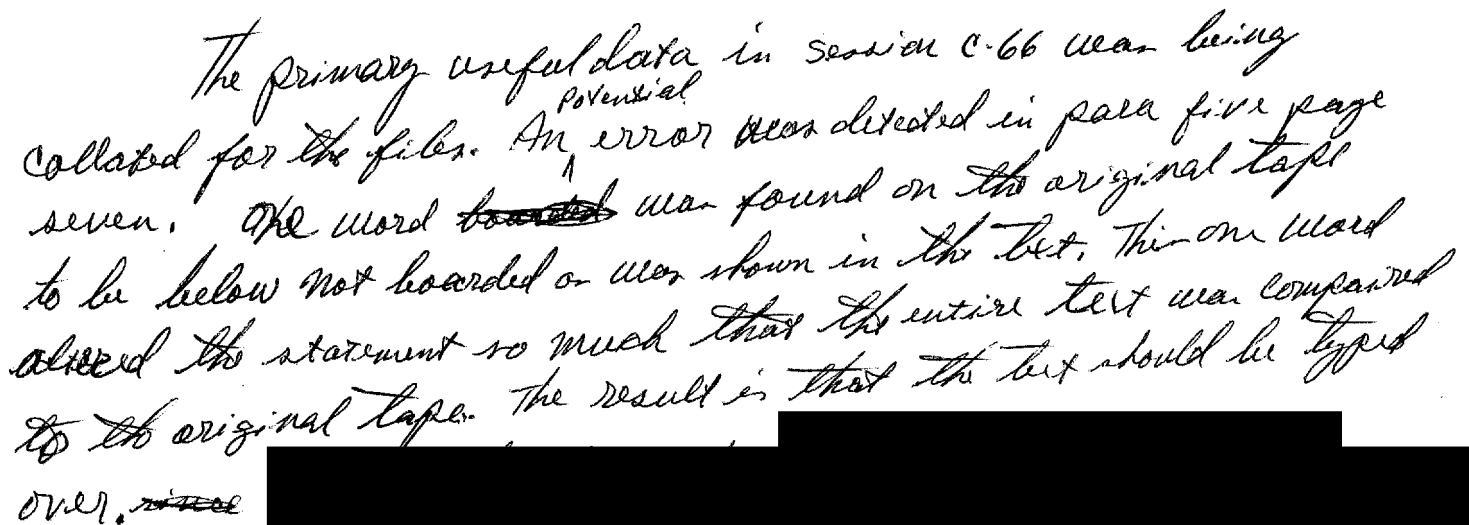 The primary useful data in session C-66 was being
potential
collated for the files. An error was detected in para five page
seven. The word boarded was found on the original tape
to be below not boarded as was shown in the text. This one word
altered the statement so much that the entire text was compaired
to the original tape. The result is that the text should be typed
over. since